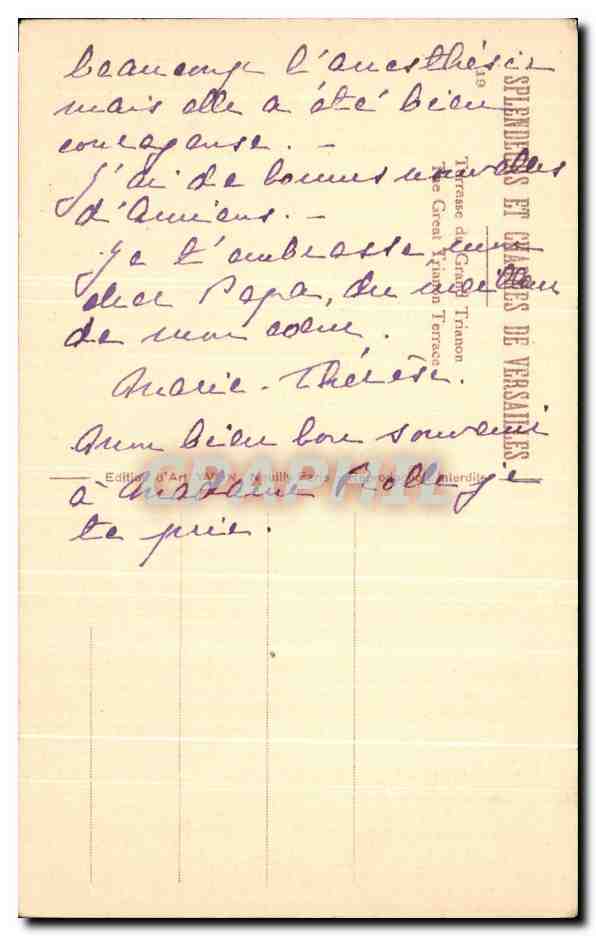 beaucoup l'anesthésie
mais elle a été bien
courageuse. –
J'ai de bonnes nouvelles
d'Amiens. –
Je t'embrasse mon
cher Papa, du meilleur
de mon coeur.
Marie-Thérèse.
Mon bien bon souvenir
à Madame Rolle je
te prie.
SPLENDEURS ET CHARMES DE VERSAILLES
19
Terrasse du Grand Trianon
The Great Trianon Terrace
Edition d'Art YVON, Neuilly Paris Reproduction interdite
CPAPHIL